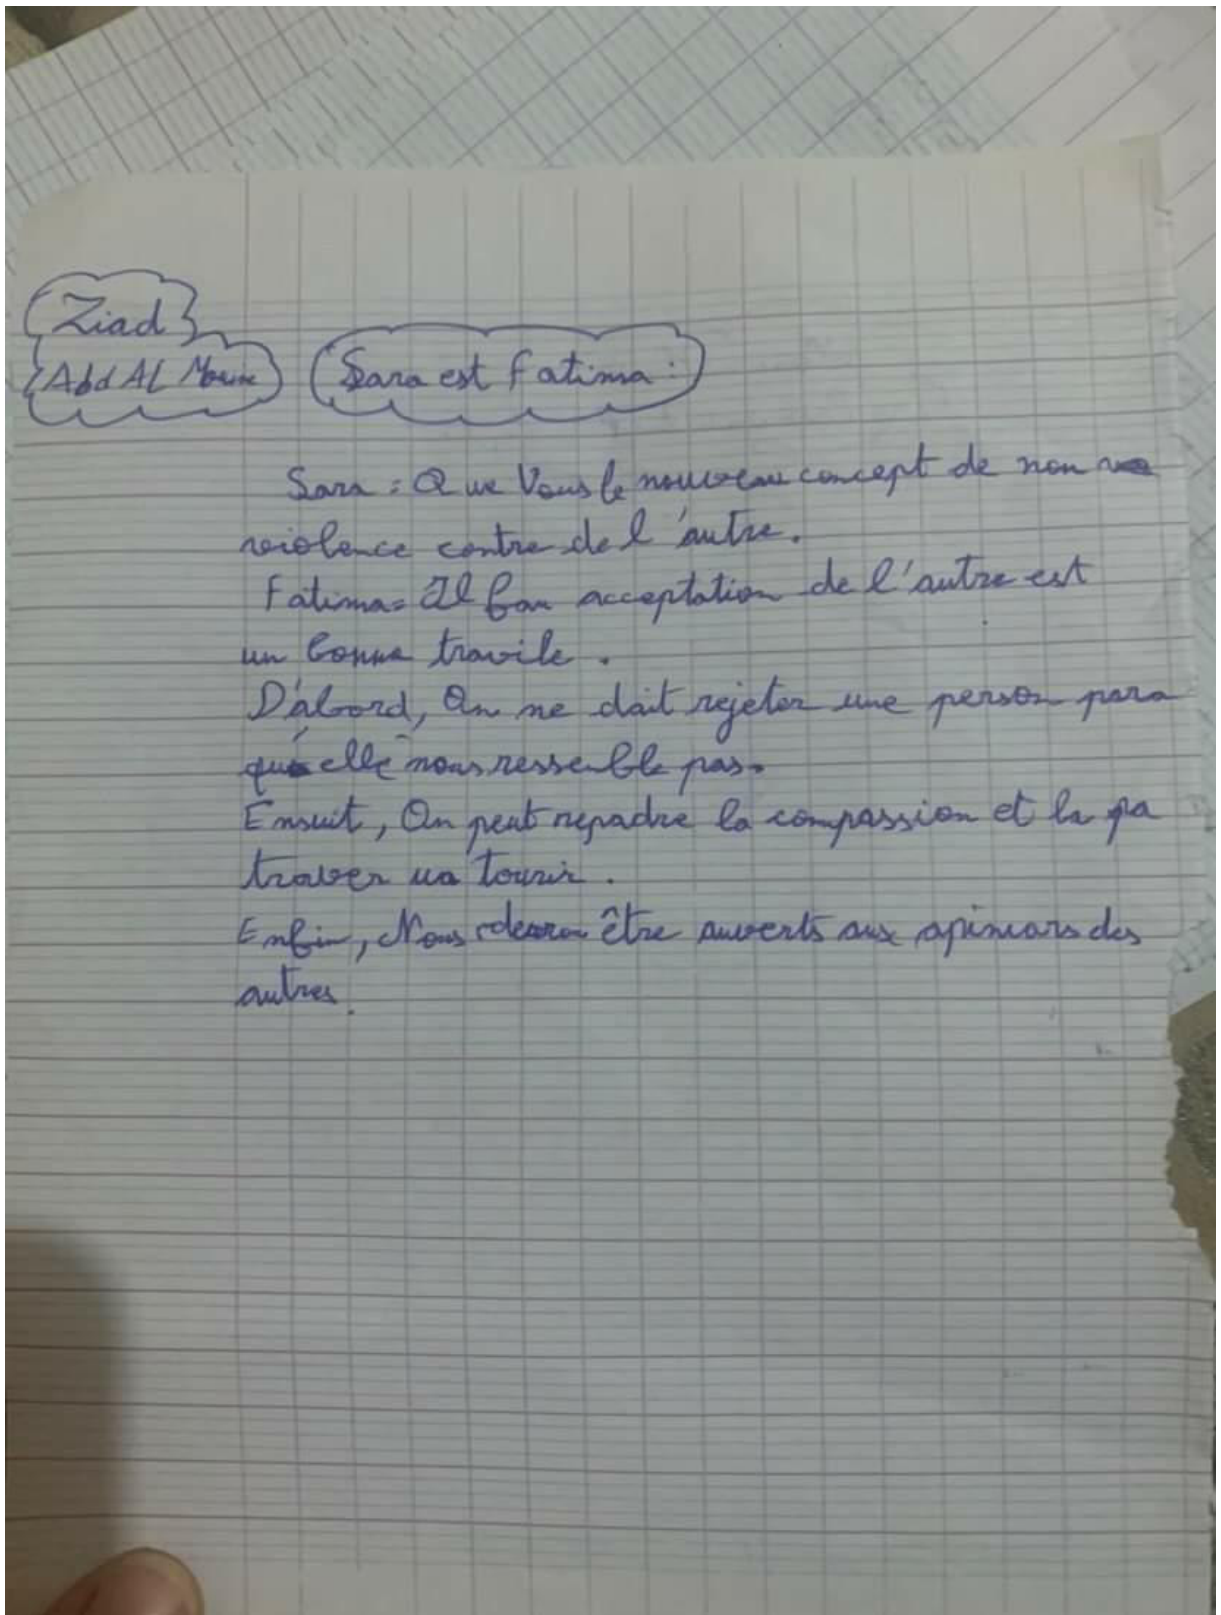 Ziad
Abd AL
Sara est Fatima :
Sara : Que Vous le nouveau concept de non
violence contre de l'autre.
Fatima = Il fau acceptation de l'autre est
un bonne travile .
D'abord, On ne dait rejeter une person para
qu'elle nous ressemble pas.
Ensuit, On peut repadre la compassion et la pa
traver un tourir .
Enfin, Nous devron être auverts aux apinions des
autres.